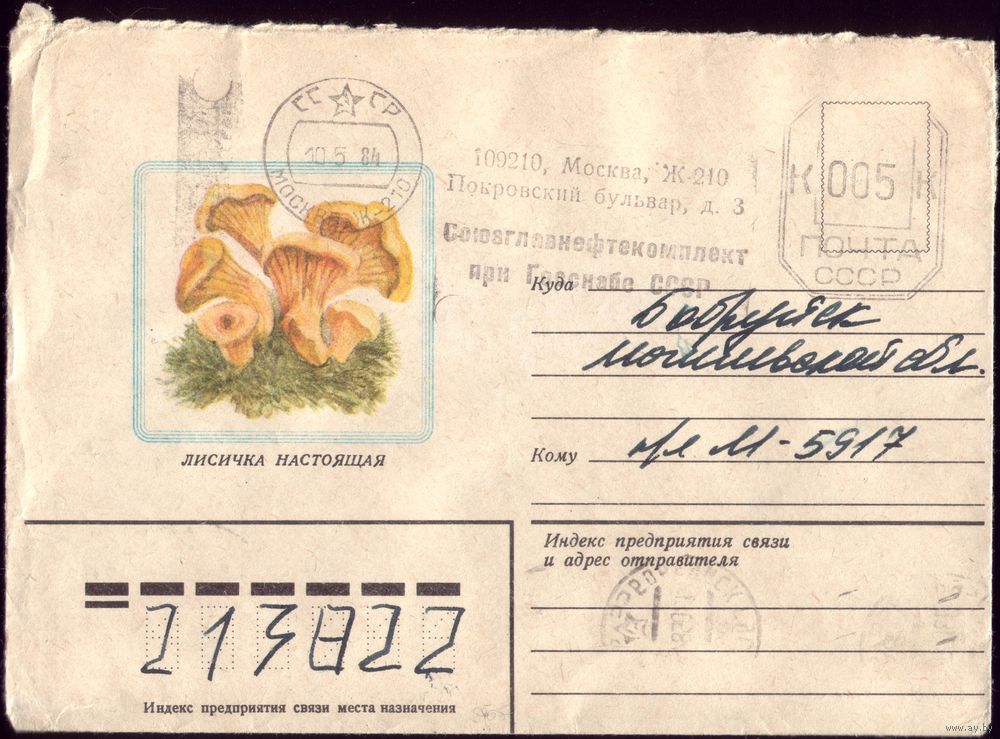 СССР
10.5 84
МОСКВА Ж-210
109210, Москва, Ж-210
Покровский бульвар, д. 3
Союзглавнефтекомплект
при Госснабе СССР
К 005 К
ПОЧТА
СССР
ЛИСИЧКА НАСТОЯЩАЯ
Куда Бобруйск
Могилевской обл.
Кому п/я М-5917
Индекс предприятия связи
и адрес отправителя
213822
Индекс предприятия связи места назначения
www.ay.by